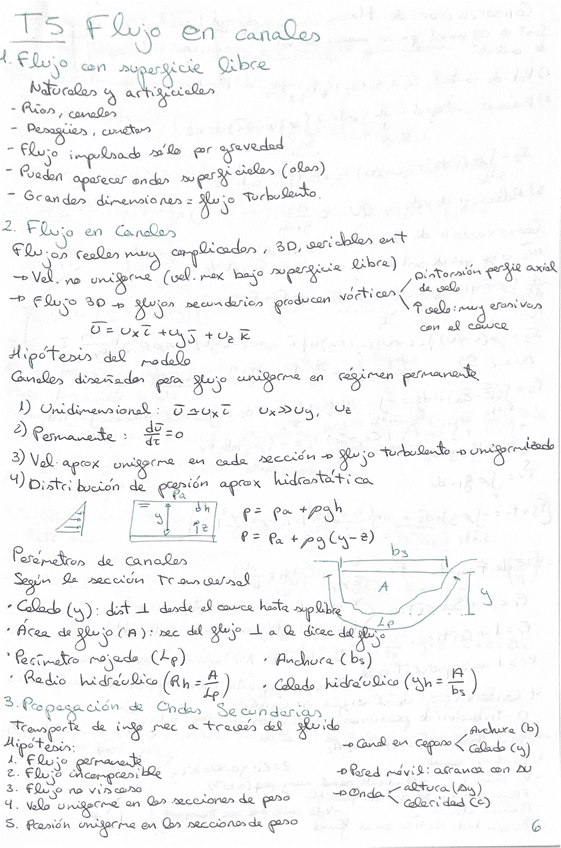 T5 Flujo en canales
1. Flujo con superficie libre
Naturales y artificiales
- Ríos, canales
- Desagües, cunetas
- Flujo impulsado sólo por gravedad
- Pueden aparecer ondas superficiales (olas)
- Grandes dimensiones = flujo turbulento.
2. Flujo en Canales
Flujos reales muy complicados, 3D, variables en t
→ Vel. no uniforme (vel. max bajo superficie libre)
→ Flujo 3D → flujos secundarios producen vórtices
Distorsión perfil axial
de velo
↑ velo: muy erosivas
con el cauce
Ū = Ux ī + Uy j̄ + Uz k̄
Hipótesis del modelo
Canales diseñados para flujo uniforme en régimen permanente
1) Unidimensional: ū ≃ Ux ī Ux >> Uy, Uz
2) Permanente: dū/dt = 0
3) Vel aprox uniforme en cada sección → flujo turbulento → uniformizado
4) Distribución de presión aprox hidrostática
Pa
y
dh
↑z
p = pa + ρgh
p = Pa + ρg(y-z)
Parámetros de canales
Según la sección Transversal
bs
A
y
Lp
• Calado (y): dist ⊥ desde el cauce hasta sup libre
• Área de flujo (A): sec del flujo ⊥ a la direc del flujo
• Perímetro mojado (Lp) • Anchura (bs)
• Radio hidráulico (Rh = A/Lp) • Calado hidráulico (yh = A/bs)
3. Propagación de Ondas Secundarias
Transporte de info mec a través del fluido
Hipótesis:
1. Flujo permanente
2. Flujo incompresible
3. Flujo no viscoso
4. Velo uniforme en las secciones de paso
5. Presión uniforme en las secciones de paso
→ Canal en reposo
Anchura (b)
Calado (y)
→ Pared móvil: arranca con δu
→ Onda
altura (Δy)
celeridad (c)
6